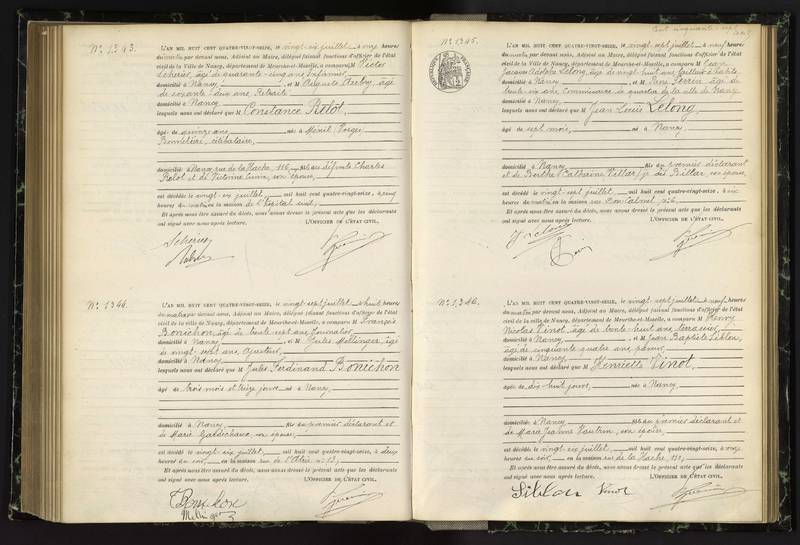 N° 1343.
L'AN MIL HUIT CENT QUATRE-VINGT-SEIZE, le vingt-six juillet à onze heures
du matin par devant nous, Adjoint au Maire, délégué faisant fonctions d'officier de l'état
civil de la Ville de Nancy, département de Meurthe-et-Moselle, a comparu M
âgé de quarante-cinq ans Infirmier
domicilié à Nancy et M Auguste âgé
de soixante-deux ans, Retraité
domicilié à Nancy
lesquels nous ont déclaré que M Constance Relot,
âgé de ans, née à Ménil (Vosges)
célibataire,
domicilié à Nancy rue de la Hache, 116, fille de défunts Charles
Relot et de Victorine son épouse,
est décédé le vingt-six juillet, mil huit cent quatre-vingt-seize, à cinq
heures du matin en la maison de l'hôpital civil,
Et après nous être assuré du décès, nous avons dressé le présent acte que les déclarants
ont signé avec nous après lecture. L'OFFICIER DE L'ÉTAT CIVIL.
N° 1344.
L'AN MIL HUIT CENT QUATRE-VINGT-SEIZE, le vingt-sept juillet à huit heures
du matin par devant nous, Adjoint au Maire, délégué faisant fonctions d'officier de l'état
civil de la ville de Nancy, département de Meurthe-et-Moselle, a comparu M François
Bonichon, âgé de trente-sept ans, Journalier
domicilié à Nancy, et M Jules Mellinger, âgé
de vingt-sept ans, Ajusteur,
domicilié à Nancy
lesquels nous ont déclaré que M Jules Ferdinand Bonichon
âgé de trois mois et treize jours né à Nancy,
domicilié à Nancy, fils du premier déclarant et
de Marie son épouse,
est décédé le vingt-six juillet, mil huit cent quatre-vingt-seize, à deux
heures du soir, en la maison rue de n° 13,
Et après nous être assuré du décès, nous avons dressé le présent acte que les déclarants
ont signé avec nous après lecture. L'OFFICIER DE L'ÉTAT CIVIL.
Bonichon
Mellinger
Cent cinquante-sept
N° 1345.
RÉPUBLIQUE FRANÇAISE
L'AN MIL HUIT CENT QUATRE-VINGT-SEIZE, le vingt-sept juillet à neuf heures
du matin par devant nous, Adjoint au Maire, délégué faisant fonctions d'officier de l'état
civil de la Ville de Nancy, département de Meurthe-et-Moselle, a comparu M Jean
Jacques Lelong, âgé de vingt-huit ans, tailleur d'habits,
domicilié à Nancy et M âgé de
trente-six ans, Commissaire de quartier de la ville de Nancy
domicilié à Nancy
lesquels nous ont déclaré que M Jean Louis Lelong,
âgé de sept mois, né à Nancy,
domicilié à Nancy, fils du premier déclarant
et de Berthe Catherine Villar son épouse,
est décédé le vingt-sept juillet, mil huit cent quatre-vingt-seize, à six
heures du matin en la maison rue Dom Calmet,
Et après nous être assuré du décès, nous avons dressé le présent acte que les déclarants
ont signé avec nous après lecture. L'OFFICIER DE L'ÉTAT CIVIL.
N° 1346.
L'AN MIL HUIT CENT QUATRE-VINGT-SEIZE, le vingt-sept juillet à neuf heures
du matin par devant nous, Adjoint au Maire, délégué faisant fonctions d'officier de l'état
civil de la ville de Nancy, département de Meurthe-et-Moselle, a comparu M Henry
Nicolas Vinot, âgé de trente-huit ans, terrassier,
domicilié à Nancy, et M Jean Baptiste
âgé de cinquante-quatre ans, paveur,
domicilié à Nancy
lesquels nous ont déclaré que M Henriette Vinot,
âgée de dix-huit jours, née à Nancy,
domicilié à Nancy, fille du premier déclarant et
de Marie Jeanne Vautrin, son épouse,
est décédé le vingt-six juillet, mil huit cent quatre-vingt-seize, à onze
heures du soir, en la maison rue de la Hache, 110,
Et après nous être assuré du décès, nous avons dressé le présent acte que les déclarants
ont signé avec nous après lecture. L'OFFICIER DE L'ÉTAT CIVIL.
Vinot